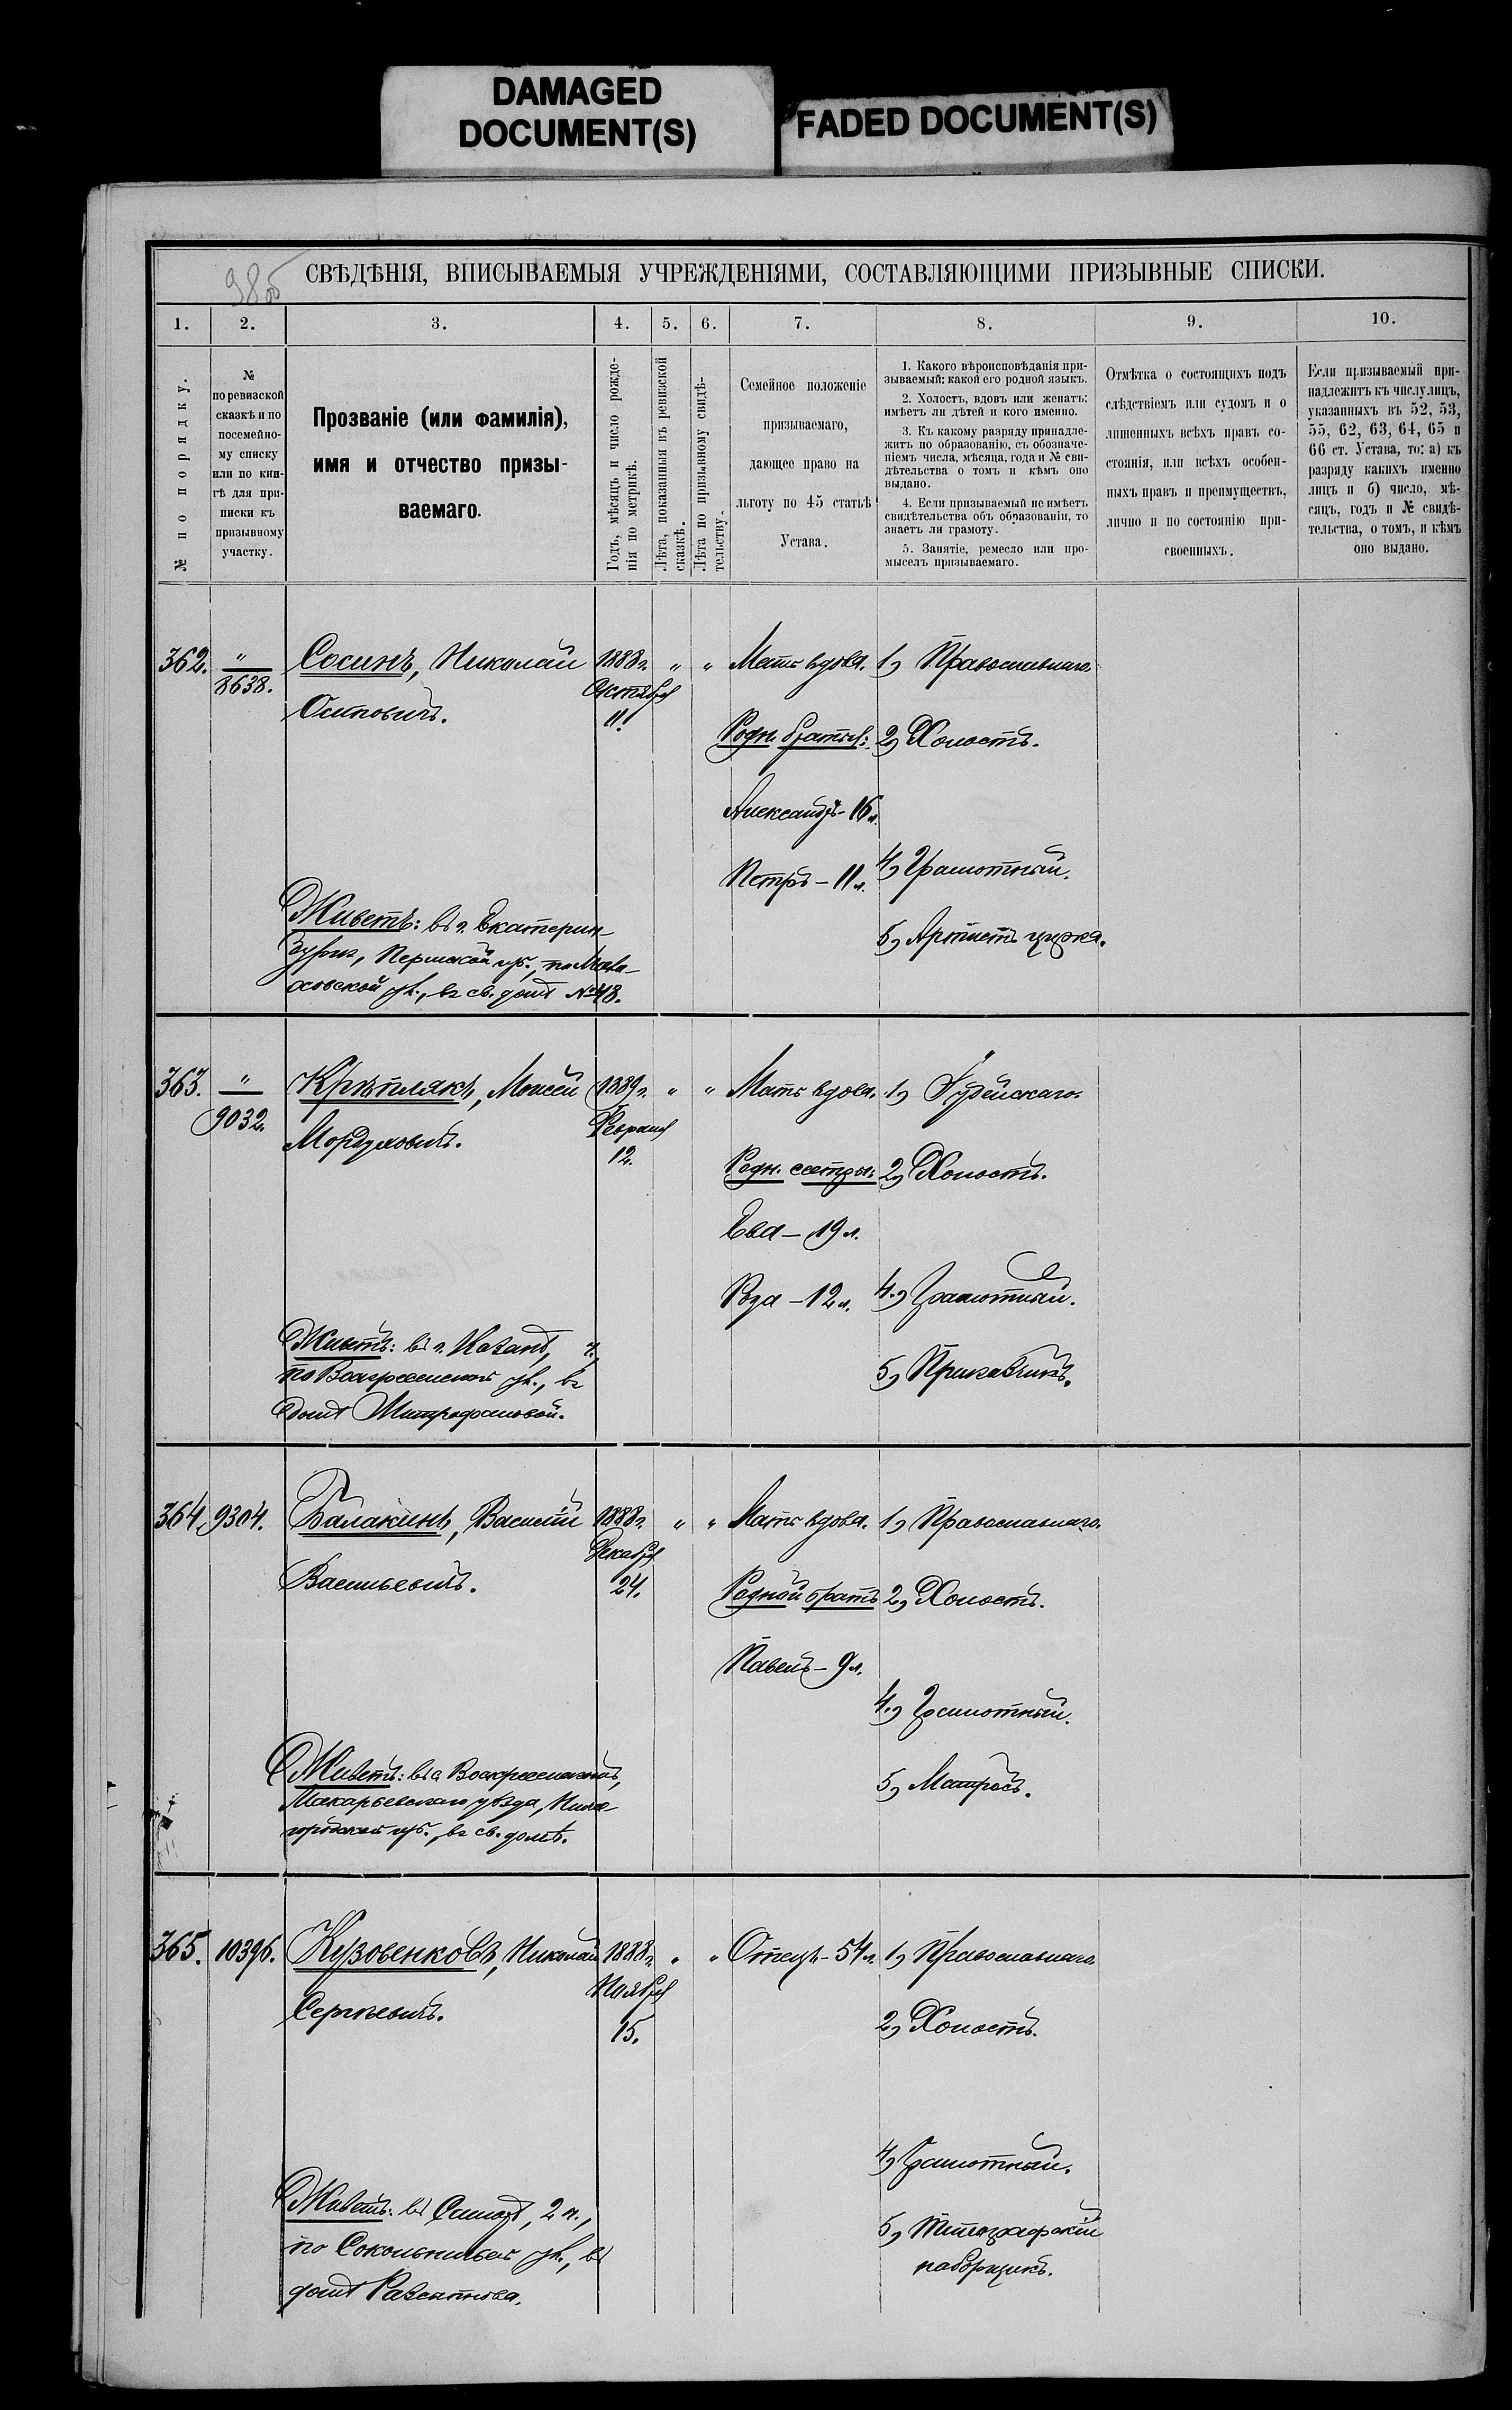 DAMAGED
DOCUMENT(S)
FADED DOCUMENT(S)
98об
СВѢДѢНІЯ, ВПИСЫВАЕМЫЯ УЧРЕЖДЕНІЯМИ, СОСТАВЛЯЮЩИМИ ПРИЗЫВНЫЕ СПИСКИ.
1. 2. 3. 4. 5. 6. 7. 8. 9. 10.
№ по порядку.
№
по ревизской
сказкѣ и по
посемейно-
му списку
или по кни-
гѣ для при-
писки къ
призывному
участку.
Прозваніе (или фамилія),
имя и отчество призы-
ваемаго.
Годъ, мѣсяцъ и число рожде-
нія по метрикѣ.
Лѣта, показанныя въ ревизской
сказкѣ.
Лѣта по призывному свидѣ-
тельству.
Семейное положеніе
призываемаго,
дающее право на
льготу по 45 статьѣ
Устава.
1. Какого вѣроисповѣданія при-
зываемый: какой его родной языкъ.
2. Холостъ, вдовъ или женатъ:
имѣетъ ли дѣтей и кого именно.
3. Къ какому разряду принадле-
житъ по образованію, съ обозначе-
ніемъ числа, мѣсяца, года и № сви-
дѣтельства о томъ и кѣмъ оно
выдано.
4. Если призываемый не имѣетъ
свидѣтельства объ образованіи, то
знаетъ ли грамоту.
5. Занятіе, ремесло или про-
мыселъ призываемаго.
Отмѣтка о состоящихъ подъ
слѣдствіемъ или судомъ и о
лишенныхъ всѣхъ правъ со-
стоянія, или всѣхъ особен-
ныхъ правъ и преимуществъ,
лично и по состоянію при-
своенныхъ.
Если призываемый при-
надлежитъ къ числу лицъ,
указанныхъ въ 52, 53,
55, 62, 63, 64, 65 и
66 ст. Устава, то: а) къ
разряду какихъ именно
лицъ и б) число, мѣ-
сяцъ, годъ и № свидѣ-
тельства, о томъ, и кѣмъ
оно выдано.
362. " Сосинъ, Николай 1888г. " " Мать вдова. 1) Православнаго.
8638. Осиповичъ. Октября
11.
Родн. братья: 2) Холостъ.
Александръ - 16 л.
Петръ - 11 л. 4) Грамотный.
5) Артистъ цирка.
Живетъ: въ г. Екатерин-
бургѣ, Пермской губ.,
ул., въ св. домѣ № 48.
363. " Крѣплякъ, Моисей 1889г. " " Мать вдова. 1) Іудейскаго.
9032. Мордуховичъ. Февраля
12.
Родн. сестры: 2) Холостъ.
Ева - 19 л.
Роза - 12 л. 4.) Грамотный.
5) Приказчикъ.
Живетъ: въ г. Казани,
по Воскресенской ул., въ
домѣ Митрофановой.
364. 9304. Балакинъ, Василій 1888г. " " Мать вдова. 1) Православнаго.
Васильевичъ. Декабря
24.
Родной братъ 2) Холостъ.
Павелъ - 9 л.
4.) Грамотный.
5) Матросъ.
Живетъ: въ с. Воскресенскомъ,
Макарьевскаго уѣзда, Ниже-
городской губ., въ св. домѣ.
365. 10396. Кузовенковъ, Николай 1888г. " " Отецъ - 54 л. 1) Православнаго.
Сергѣевичъ. Ноября
15.
2) Холостъ.
4) Грамотный.
5) Типографскій
наборщикъ.
Живетъ: въ Самарѣ, 2 ч.,
по Сокольничьей ул., въ
домѣ